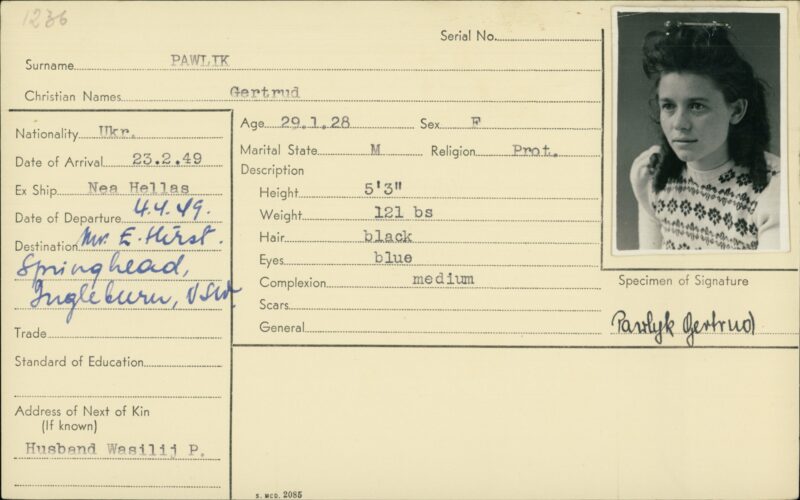 1236
Serial No.
Surname PAWLIK
Christian Names Gertrud
Nationality Ukr.
Date of Arrival 23.2.49
Ex Ship Nea Hellas
Date of Departure 4.4.49.
Destination Mr. E. Hirst.
Springhead,
Ingleburn, NSW.
Trade
Standard of Education
Address of Next of Kin
(If known)
Husband Wasilij P.
Age 29.1.28 Sex F
Marital State M Religion Prot.
Description
Height 5'3"
Weight 121 bs
Hair black
Eyes blue
Complexion medium
Scars
General
Specimen of Signature
Pawlyk Gertrud
S. MCD. 2085